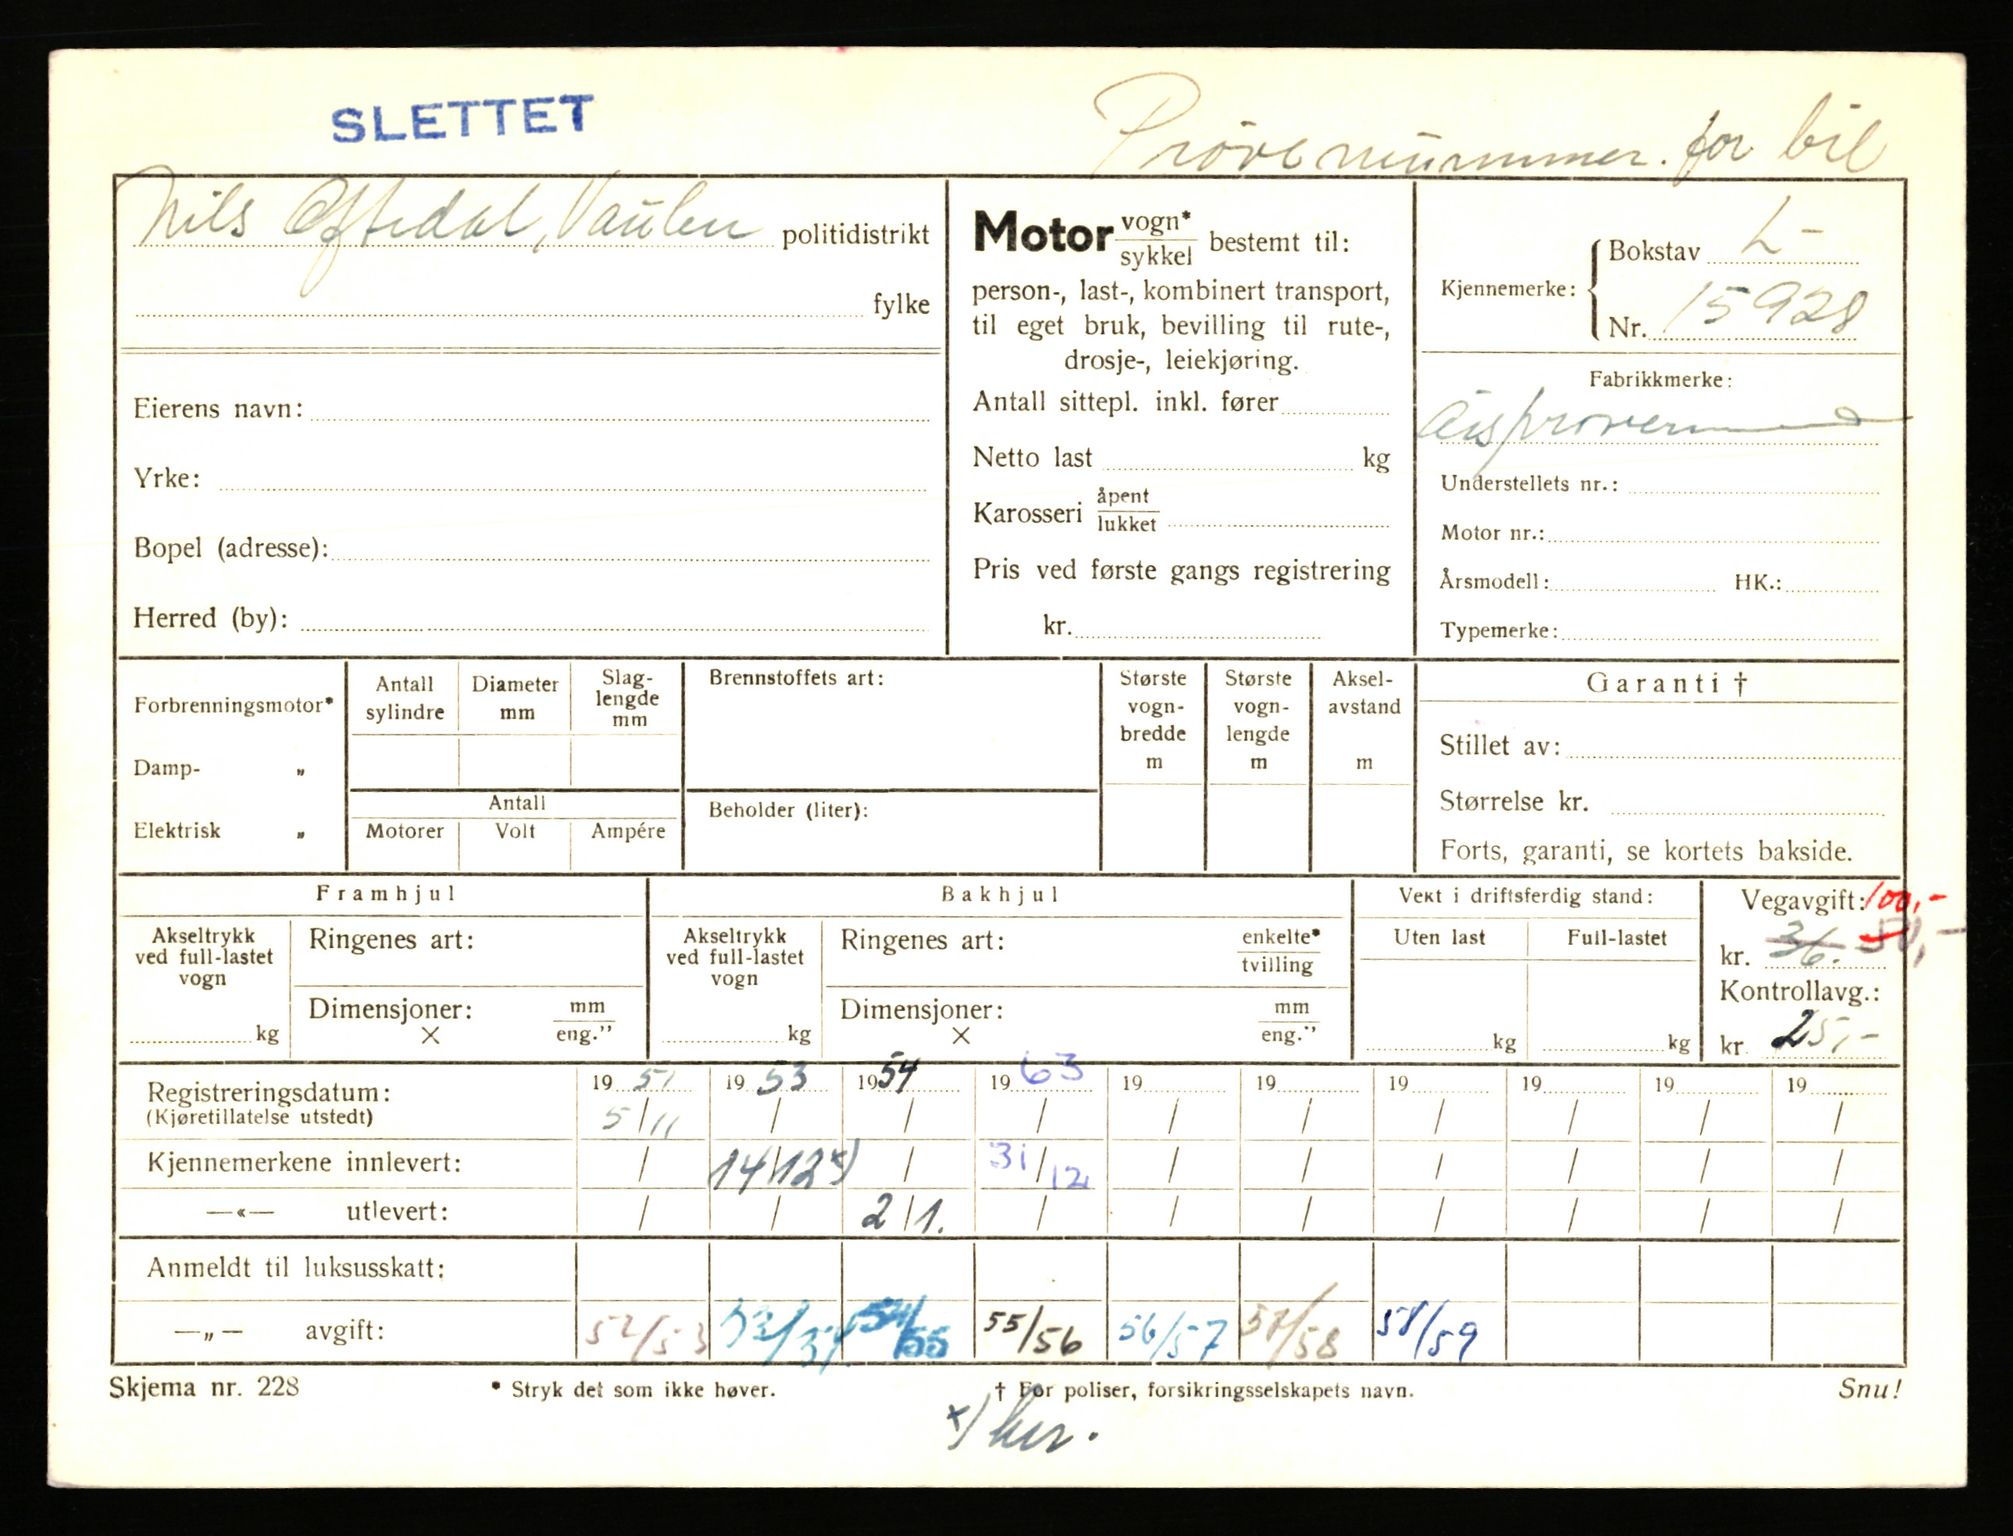 SLETTET
Prøvenummer. for bil
Nils Oftedal, Vaulen politidistrikt
fylke
Eierens navn:
Yrke:
Bopel (adresse):
Herred (by):
Motor vogn* / sykkel bestemt til:
person-, last-, kombinert transport,
til eget bruk, bevilling til rute-,
drosje-, leiekjøring.
Antall sittepl. inkl. fører
Netto last kg
Karosseri åpent / lukket
Pris ved første gangs registrering
kr.
Kjennemerke: Bokstav L-
Nr. 15928
Fabrikkmerke:
Understellets nr.:
Motor nr.:
Årsmodell: HK.:
Typemerke:
Forbrenningsmotor*
Damp- „
Elektrisk „
Antall sylindre
Diameter mm
Slag-lengde mm
Antall
Motorer Volt Ampére
Brennstoffets art:
Beholder (liter):
Største vogn-bredde m
Største vogn-lengde m
Aksel-avstand m
Garanti †
Stillet av:
Størrelse kr.
Forts, garanti, se kortets bakside.
Framhjul
Akseltrykk ved full-lastet vogn
kg
Ringenes art:
Dimensjoner: mm / eng.”
×
Bakhjul
Akseltrykk ved full-lastet vogn
kg
Ringenes art: enkelte* / tvilling
Dimensjoner: mm / eng.”
×
Vekt i driftsferdig stand:
Uten last Full-lastet
kg kg
Vegavgift: 100,-
kr. 36. 50,-
Kontrollavg.:
kr 25,-
Registreringsdatum: 19 51 19 53 19 54 19 63 19 19 19 19 19 19
(Kjøretillatelse utstedt) 5/11 / / / / / / / / /
Kjennemerkene innlevert: / 14/12 x) / 31/12 / / / / / /
—«— utlevert: / / 2/1. / / / / / / /
Anmeldt til luksusskatt:
—„— avgift: 52/53 53/54 54/55 55/56 56/57 57/58 58/59
Skjema nr. 228 * Stryk det som ikke høver. † For poliser, forsikringsselskapets navn. Snu!
x) her.